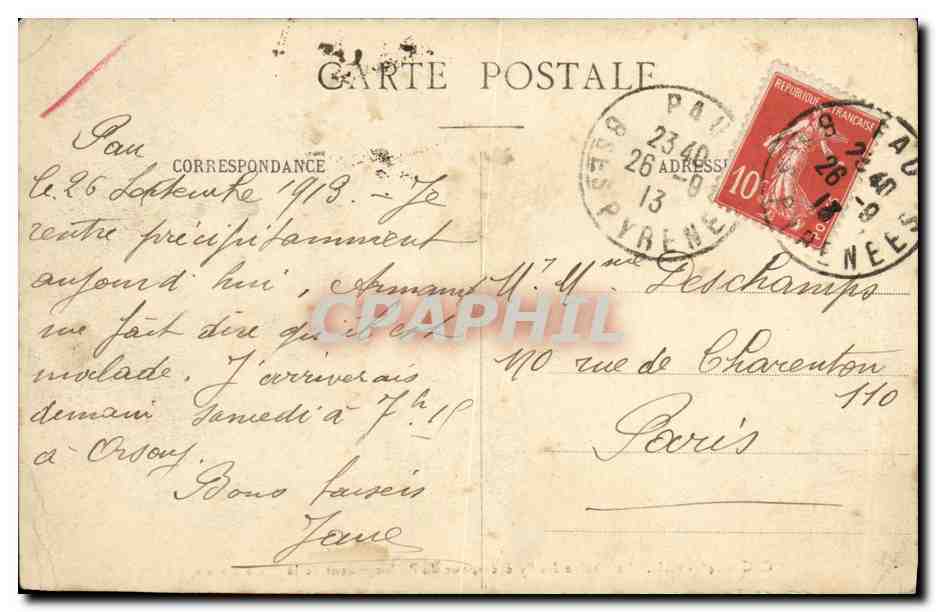 CARTE POSTALE
CORRESPONDANCE
ADRESSE
Pau
le 26 Septembre 1913. - Je
rentre précipitamment
aujourd'hui, Armand
me fait dire qu'il est
malade. J'arriverais
demain samedi à 7h.15
à Orsay.
Bons baisers
Jane
Mr Mme Deschamps
110 rue de Charenton
110
Paris
PAU
23 40
26 -9
13
BSES PYRENEES
REPUBLIQUE FRANÇAISE
10
PAU
23 40
26 -9
13
PYRENEES
CPAPHIL